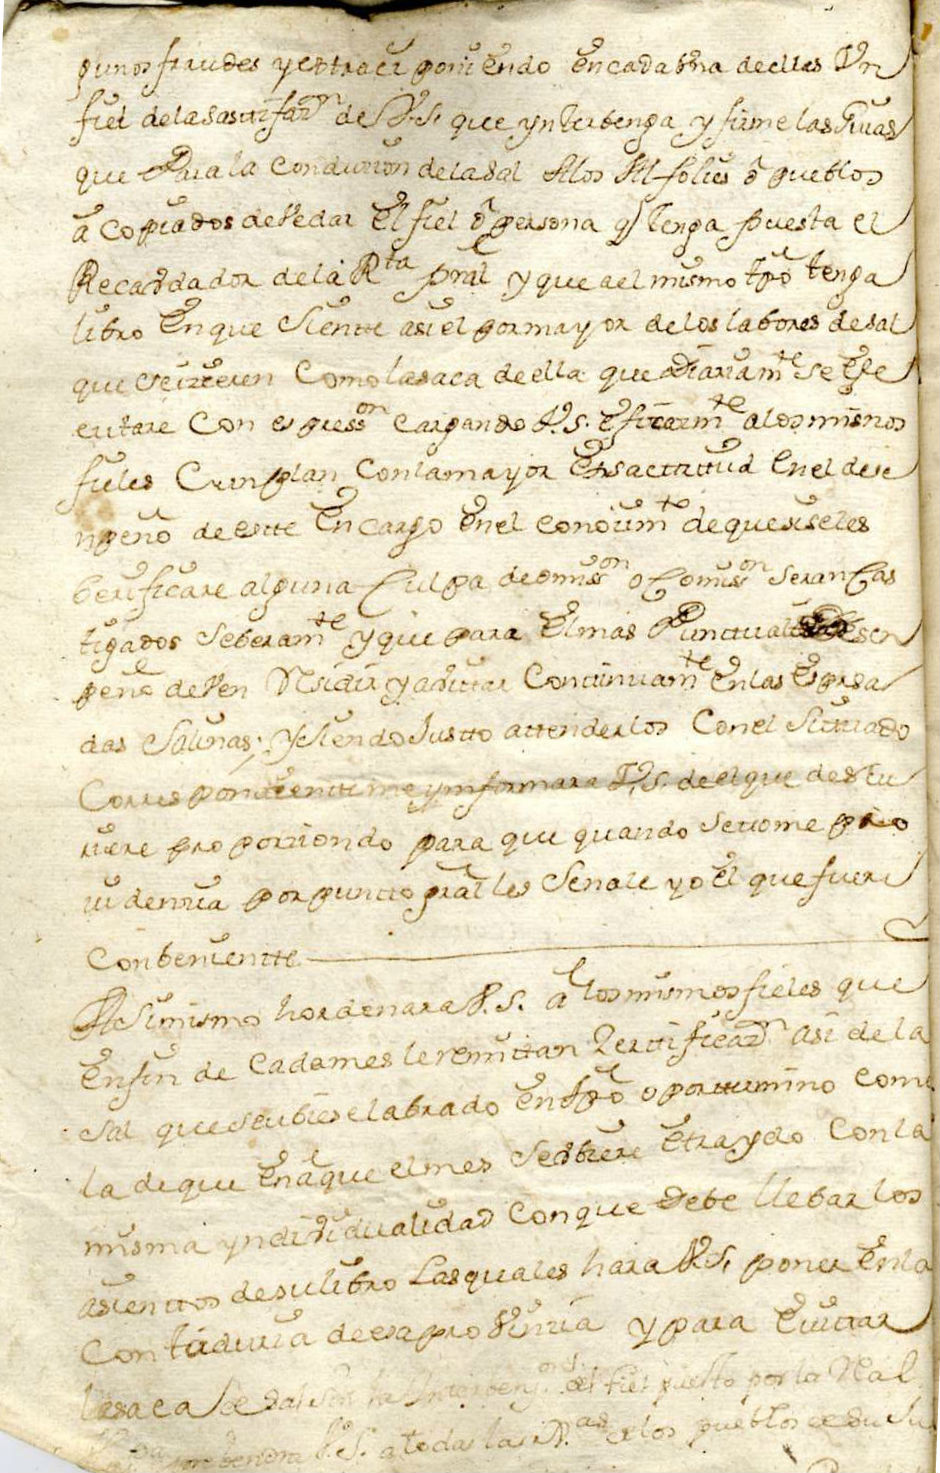 gunos fraudes y extracz poniendo en cada Vna de ellas Vn
fiel de la sastisfazn de V.S. que ynterbenga y firme las Guias
que Para la Conduzion de la Sal A los Alfolies o pueblos
a Copiados deve dar El fiel o persona q tenga puesta el
Recaudador de la Rta pral y que a el mismo tpo tenga
libro En que Siente asi el por mayor de los labores de sal
que se izieren Como la saca de ella que Diariamte se Exe
cutare Con espresson Cargando V.S. Eficazmte a los mismos
fieles Cumplan Con la mayor Exsacttittud En el dese
npeño de estte Encargo En el Conozimto de que si se les
berificare alguna Culpa de omisson o Comisson Seran Cas
tigados Seberamte y que para El mas Punttual Desen
peño deven Residir y avittar Continuamte En las Espresa
das Salinas; y Siendo Justto attenderlos Con el Sittuado
Correspondientte me ynformara V.S. de el que
 proporzionado para que quando se tome pro
videnzia por puntto gral les Señale yo El que fuere
Conbenientte
Asimismo hordenara V.S. a los mismos fieles que
En fin de Cada mes le remittan Zerttificazn asi de la
Sal que se ubiese labrado En tpo oporttuno Como
la de que En aquel mes Se Extraydo Con la
misma yndividualidad Con que Debe llebar los
asienttos de su libro Las quales hara V.S. poner En la
Conttaduria de esa provinzia y para Evittar
la saca de Sal Sin la Interbenzon del fiel puesto por la Real
 V.S. a todas las de los pueblos de su